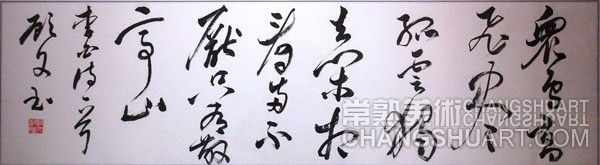 眾鳥高
飛盡
孤雲獨
去閑相
看兩不
厭只有敬
亭山
李白詩一首
文书
常熟美術 CHANGSHUART
CHANGSHUART.COM